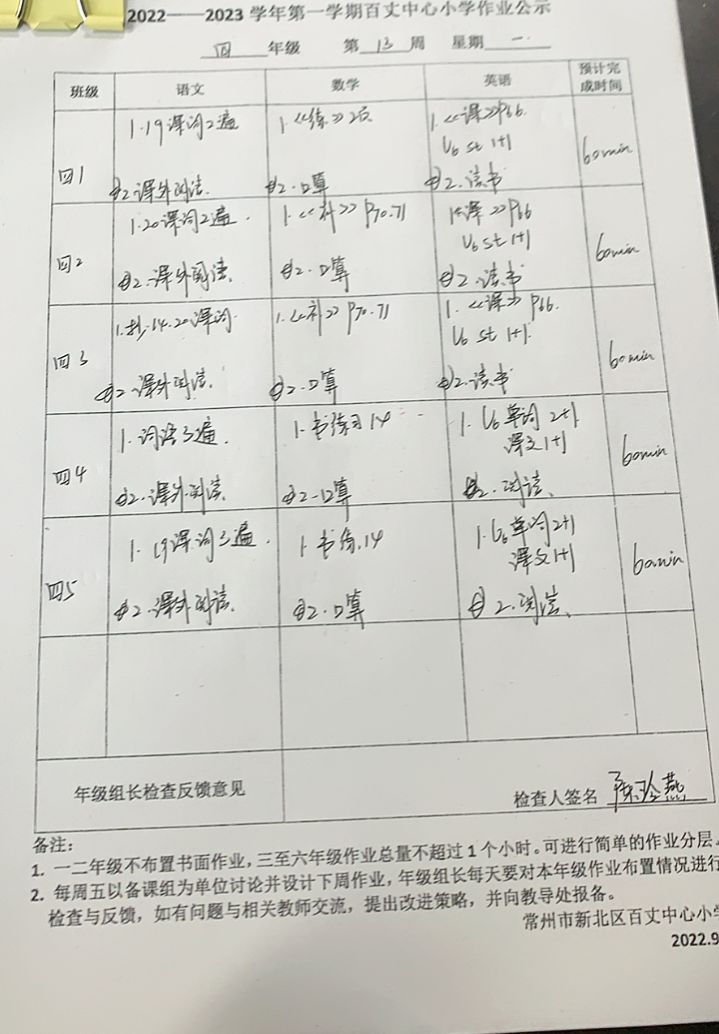 2022——2023 学年第一学期百丈中心小学作业公示
四 年级 第 13 周 星期 一
班级 语文 数学 英语 预计完成时间
四1
1.19课词2遍
2.课外阅读.
1.《练》2页
2.口算
1.《课》P66.
U6 st 1+1
2.读书
60min
四2
1.20课词2遍.
2.课外阅读.
1.《补》P70.71
2.口算
1.《课》P66
U6 st 1+1
2.读书
60min
四3
1.抄.14.20课词.
2.课外阅读.
1.《补》P70.71
2.口算
1.《课》P66.
U6 st 1+1.
2.读书
60min
四4
1.词语3遍.
2.课外阅读.
1.书练习14
2.口算
1.U6单词2+1
课文1+1
2.阅读.
60min
四5
1.19课词3遍.
2.课外阅读.
1.书练.14
2.口算
1.U6单词2+1
课文1+1
2.阅读.
60min
年级组长检查反馈意见
检查人签名
备注:
1. 一二年级不布置书面作业,三至六年级作业总量不超过 1 个小时。可进行简单的作业分层.
2. 每周五以备课组为单位讨论并设计下周作业,年级组长每天要对本年级作业布置情况进行
检查与反馈,如有问题与相关教师交流,提出改进策略,并向教导处报备。
常州市新北区百丈中心小学
2022.9